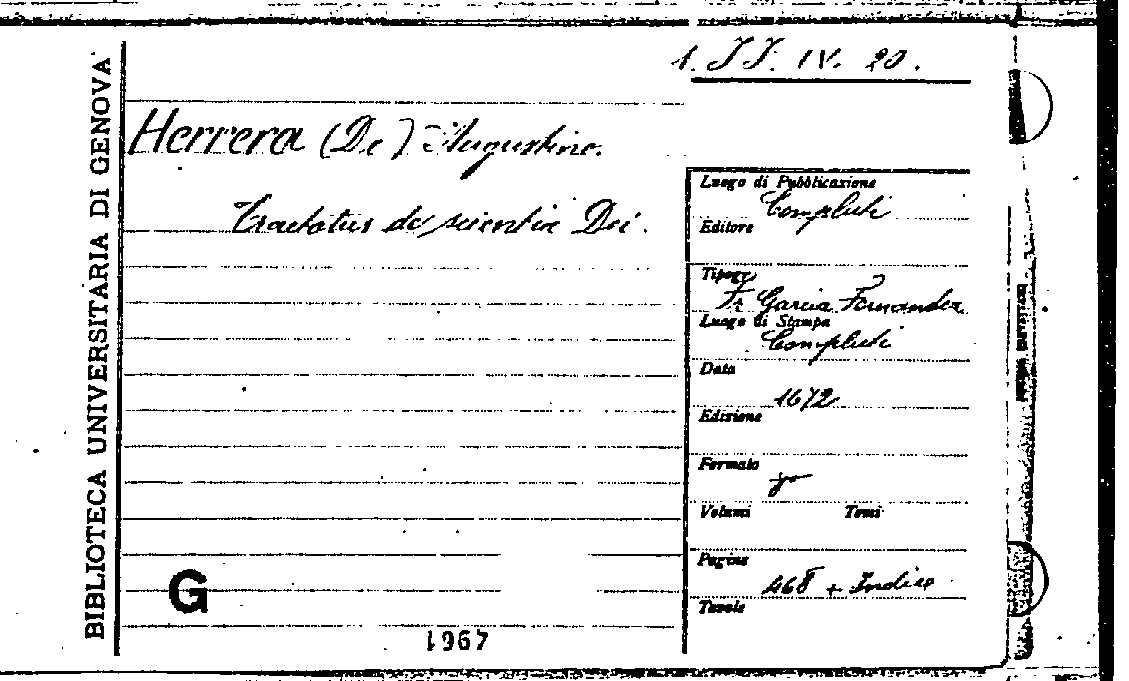 1. JJ. IV. 20.
BIBLIOTECA UNIVERSITARIA DI GENOVA
Herrera (De) Augustino.
Tractatus de scientia Dei.
Luogo di Pubblicazione
Compluti
Editore
Tipogr
Fr Garcia Fernandez
Luogo di Stampa
Compluti
Data
1672
Edizione
Formato
8°
Volumi Tomi
Pagine
468 + Indice
Tavole
G
1967